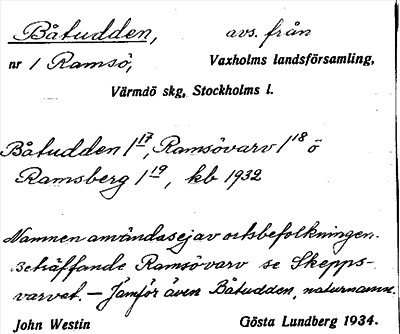 Båtudden, avs. från
nr 1 Ramsö, Vaxholms landsförsamling,
Värmdö skg, Stockholms l.
Båtudden 1 17, Ramsövarv 1 18 o
Ramsberg 1 19, kb 1932
Namnen användas ej av ortsbefolkningen.
Beträffande Ramsövarv se Skepps-
varvet. – Jämför även Båtudden, naturnamn.
John Westin Gösta Lundberg 1934.